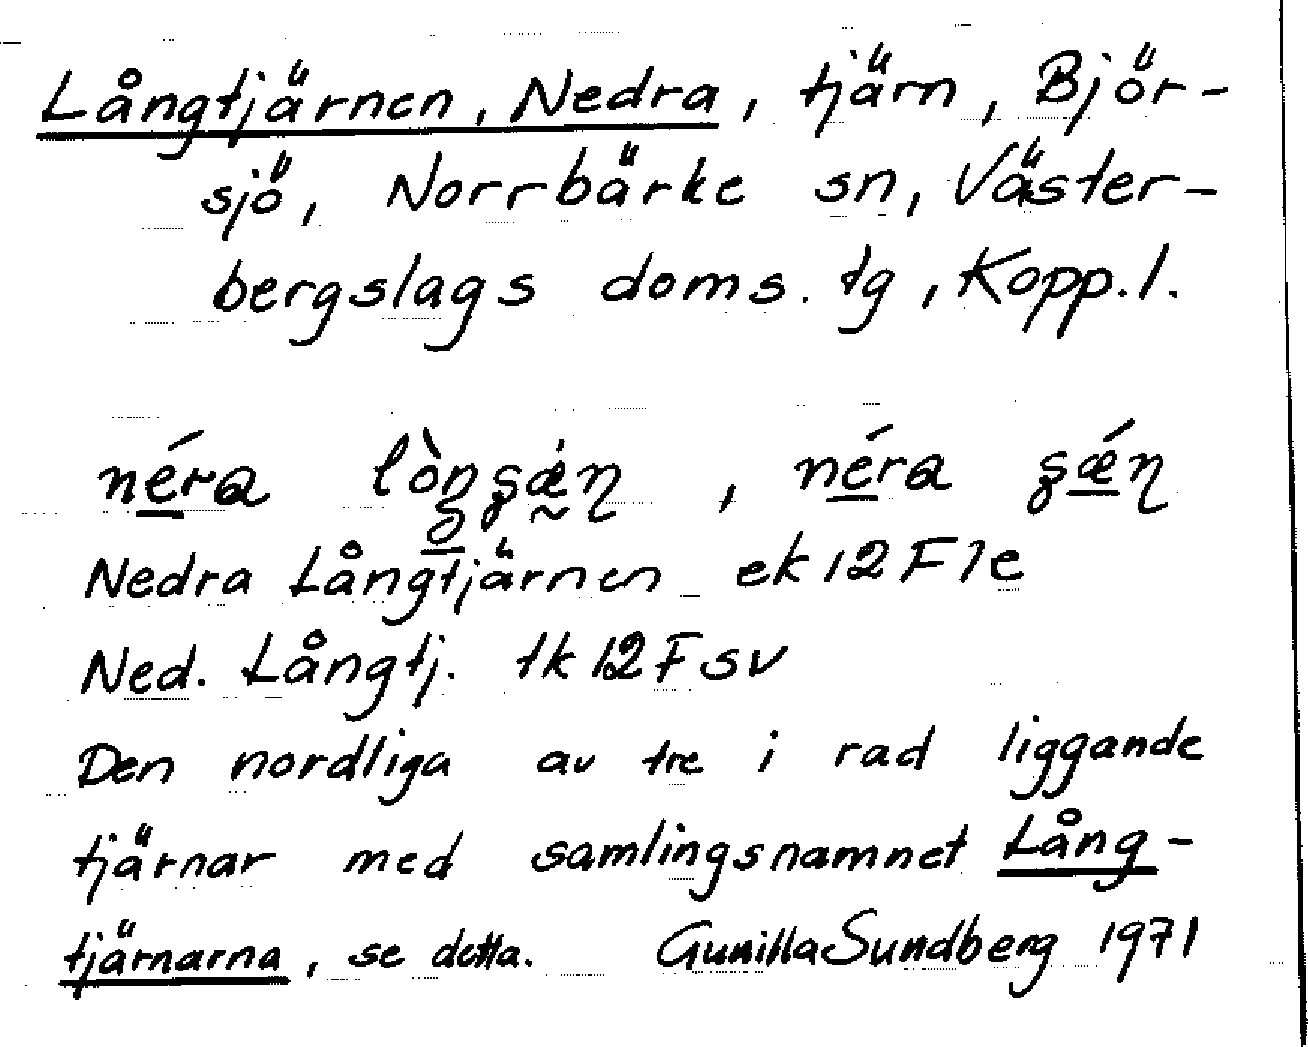 Långtjärnen, Nedra, tjärn, Björ-
sjö, Norrbärke sn, Väster-
bergslags doms. tg, Kopp. l.
néra , néra
Nedra Långtjärnen ek 12 F 7e
Ned. Långtj. tk 12 F sv
Den nordliga av tre i rad liggande
tjärnar med samlingsnamnet Lång-
tjärnarna, se detta. Gunilla Sundberg 1971